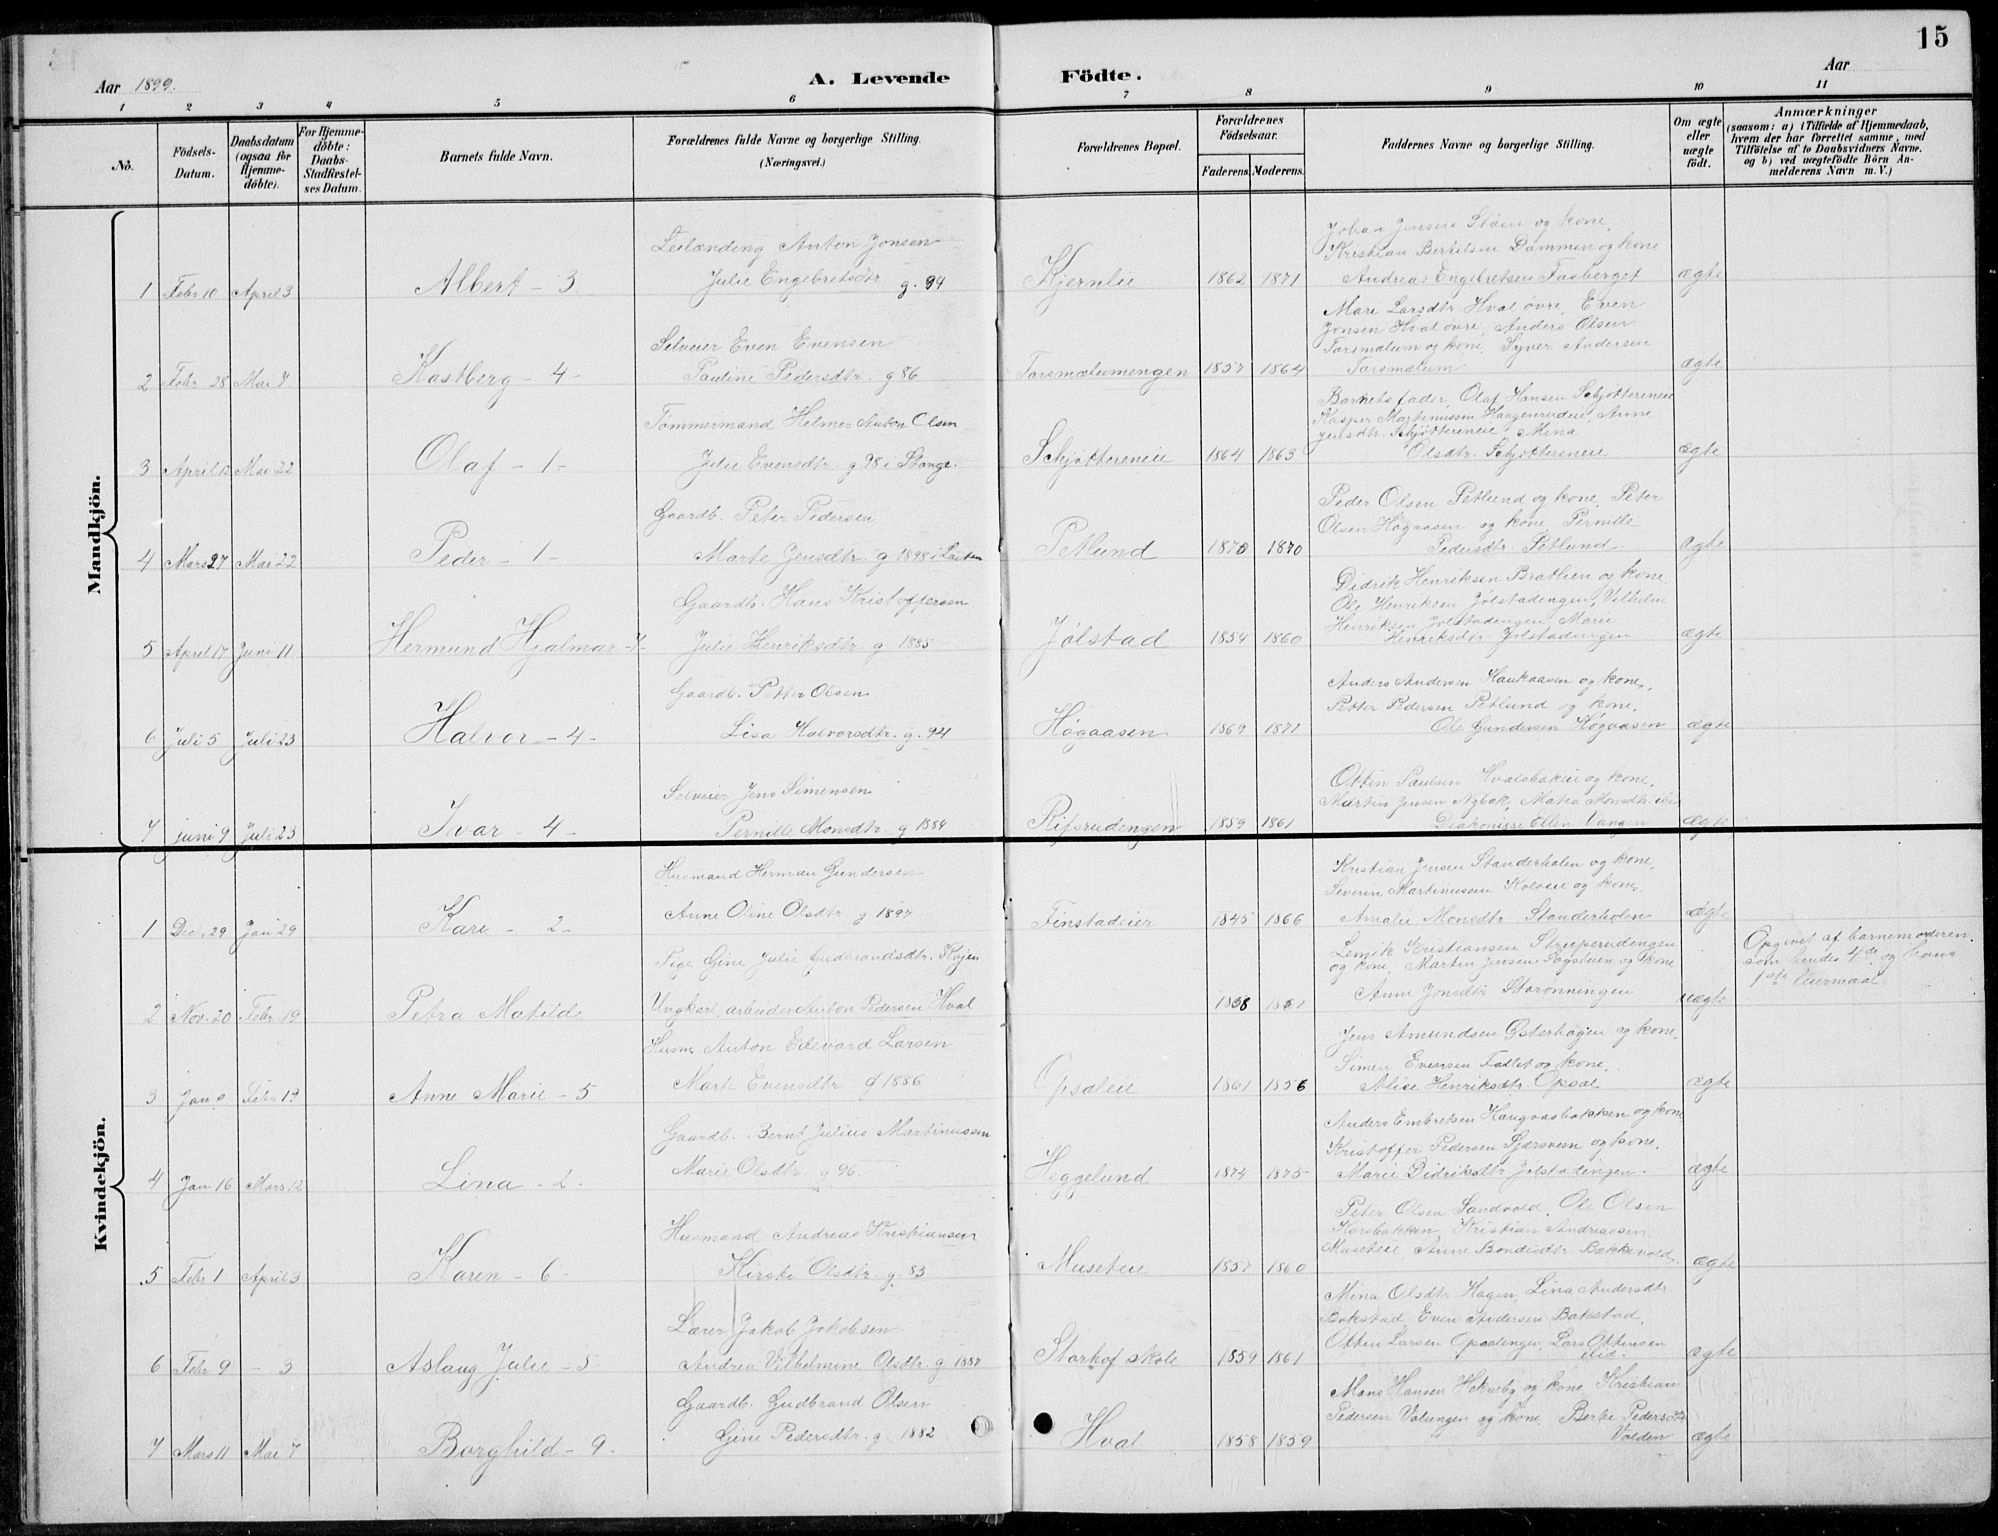 15
Aar 1899.
A. Levende Födte.
Aar
1 2 3 4 5 6 7 8 9 10 11
No.
Födsels-Datum.
Daabsdatum (ogsaa for Hjemme-döbte).
For Hjemme-döbte: Daabs-Stadfæstel-ses Datum.
Barnets fulde Navn.
Forældrenes fulde Navne og borgerlige Stilling. (Næringsvei.)
Forældrenes Bopæl.
Forældrenes Födselsaar.
Faderens. Moderens.
Faddernes Navne og borgerlige Stilling.
Om ægte eller uægte födt.
Anmærkninger
(saasom: a) i Tilfælde af Hjemmedaab, hvem der har forrettet samme, med Tilföielse af to Daabsvidners Navne. og b) ved uægtefödte Börn An-melderens Navn m. V.)
Mandkjön.
Leilænding Anton Jonsen
Johan Jensen Støen og kone,
Kristian Bertelsen Dammen og kone
1 Febr 10 April 3 Albert - 3 Julie Engebretsdtr g. 94 Kjernlie 1862 1871 Andreas Engebretsen Faaberget ægte
Selveier Even Evensen
Mari Larsdtr Hval övre, Even
Jonsen Hval övre, Anders Olsen
Torsmælum og kone, Syver Andersen
2 Febr 28 Mai 7 Kastberg - 4 - Pauline Pedersdtr. g 86 Torsmælumengen 1857 1864 Torsmælum ægte
Tømmermand Helmer Anton Olsen
Barnets fader, Olaf Hansen Schjøttereneie
Kasper Martinussen Haagenrudeie, Anne
Jensdtr. Schjøttereneie Mina
3 April 12 Mai 22 Olaf - 1 - Julie Evensdtr. g 98 i Stange. Schjøttereneie 1864 1863 Olsdtr. Schjøttereneie ægte
Gaardb. Peter Pedersen
Peder Olsen Petlund og kone, Peter
Olsen Høgaasen og kone, Pernille
4 Mars 27 Mai 22 Peder - 1 - Marte Jensdtr. g 1898 i Løiten Petlund 1870 1870 Pedersdtr. Petlund. ægte
Gaardb. Hans Kristoffersen
Didrik Henriksen Bratlien og kone
Ole Henriksen Jølstadengen, Vilhelm
Henriksen Jølstadengen, Marie
5 April 17 Juni 11 Hermund Hjalmar - 7 Julie Henriksdtr g 1885 Jølstad 1854 1860 Henriksdtr Jølstadengen ægte
Gaardb. Petter Olsen
Anders Andersen Haukaasen og kone,
Petter Pedersen Petlund og kone,
6 Juli 5 Juli 23 Halvor - 4 - Lisa Halvorsdtr. g. 94 Høgaasen 1869 1871 Ole Gundersen Høgaasen ægte
Selveier Jens Simensen
Ottin Paulsen Hvalsbakeie og kone,
Martin Jensen Nybak, Matea Monsdtr. ibid
7 Juni 9 Juli 23 Ivar - 4 - Pernille Monsdtr. g 1884 Rifsrudengen 1859 1861 Diakonisse Ellen Vangen ægte
Kvindekjön.
Husmand Herman Gundersen
Kristian Jensen Standerholen og kone,
Severin Martinussen Kolveie og kone
1 Dec. 29 Jan 29 Kari - 2 - Anne Oline Olsdtr g 1897 Finstadeier 1845 1866 Amalie Monsdtr Standerholen ægte
Pige Gine Julie Gudbrandsdtr. Skøien
Lemik Kristiansen Struperudengen
og kone, Martin Jensen Sagstuen og kone
2 Nov. 20 Febr 19 Petra Matilde Ungkarl, arbeider Anton Pedersen Hval Anne Jonsdtr Storønningen uægte
Opgivet af barnemoderen.
som hendes 4de og hans
1ste leiermaal
Husm. Anton Edevard Larsen
Jens Amundsen Østerhagen og kone,
Simen Evensen Fallet og kone,
3 Jan Febr 19 Anne Marie - 5 Marte Evensdtr. g 1886 Opsaleie 1861 1856 Alise Henriksdtr. Opsal ægte
Gaardb. Bernt Julius Martinussen
Anders Embretsen Haugaasbakken og kone
Kristoffer Pedersen Bjørsveen og kone,
4 Jan 16 Mars 12 Lina - 2 - Marie Olsdtr g 96 Heggelund 1874 1875 Marie Didriksdtr. Jølstadengen ægte
Husmand Andreas Kristiansen
Peter Olsen Sandvold, Ole Olsen
Korsbakken, Kristian Andreassen
Museteie Anne Bondesdtr. Bækkevold
5 Febr 1 April 3 Karen - 6 - Kirsti Olsdtr. g. 83 Museteie 1857 1860 ægte
Lærer Jakob Jakobsen
Mina Olsdtr Hagen, Lina Andersdtr
Bakstad, Even Andersen Bakstad,
Ottin Larsen Opsalengen, Lars Ottensen
ibid.
6 Febr 9 - 3 Aslaug Julie - 5 - Andrea Vilhelmine Olsdtr g 1887 Storhof skole 1859 1861 ægte
Gaardb. Gudbrand Olsen
Mons Hansen Hekneby og kone Kristian
Pedersen Volungen og kone. Berte Pedersdtr
7 Mars 11 Mai 7 Borghild - 9. Gine Pedersdtr. g. 1882 Hval 1858 1859 Volden ægte